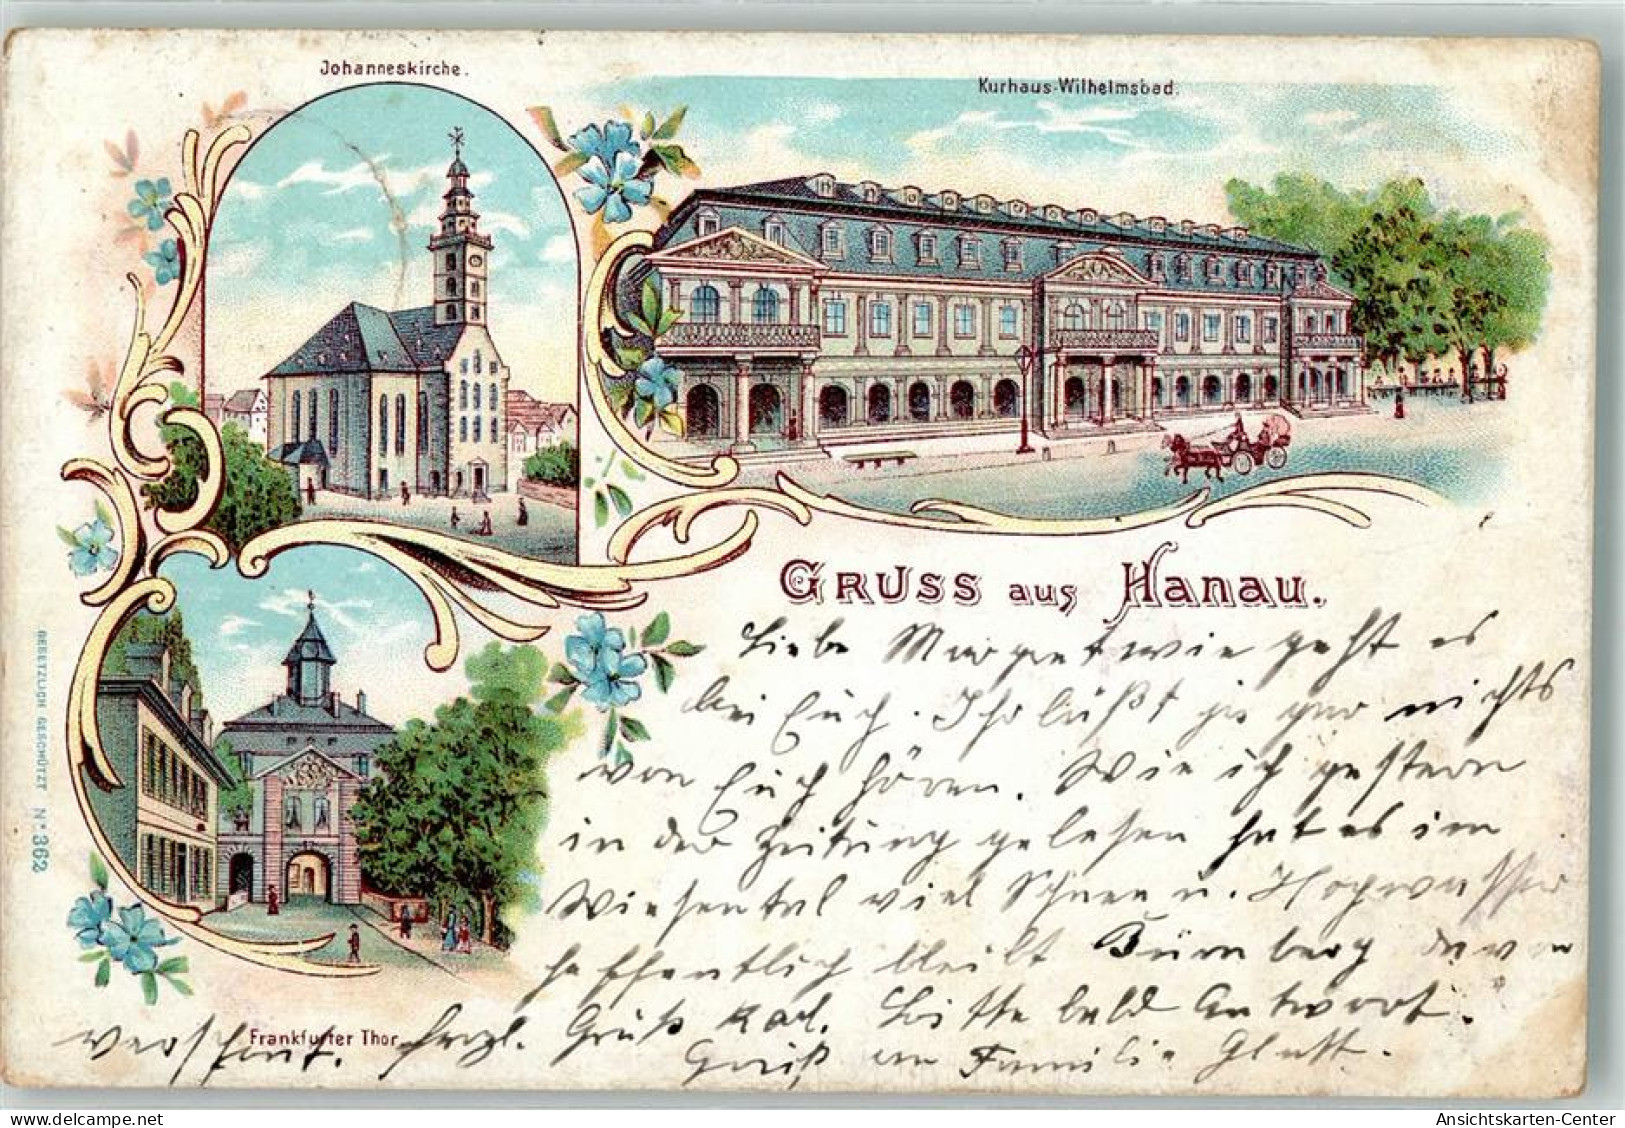 Johanneskirche.
Kurhaus-Wilhelmsbad.
GRUSS aus Hanau.
Liebe Margret wie geht es
bei Euch. Ihr läßt ja gar nichts
von Euch hören. Wie ich gestern
in der Zeitung gelesen hat es im
Wiesental viel Schnee u. Hochwasser
hoffentlich bleibt Dürnberg davon
verschont. Herzl. Gruß Karl. Bitte bald Antwort.
Gruß an Familie
Frankfurter Thor.
GESETZLICH GESCHÜTZT No. 362
Ansichtskarten-Center